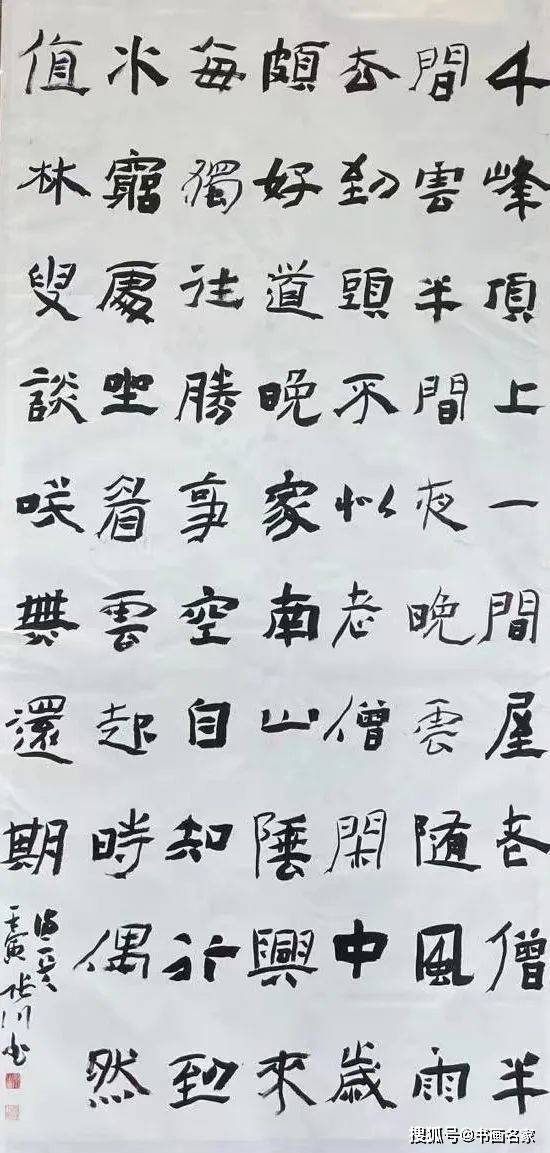 千峰頂上一間屋老僧半
間雲半間夜晚雲隨風雨
去到頭不似老僧閑中歲
頗好道晚家南山陲興來
每獨往勝事空自知行到
水窮處坐看雲起時偶然
值林叟談咲無還期
詩二首
壬寅川书
搜狐号@书画名家